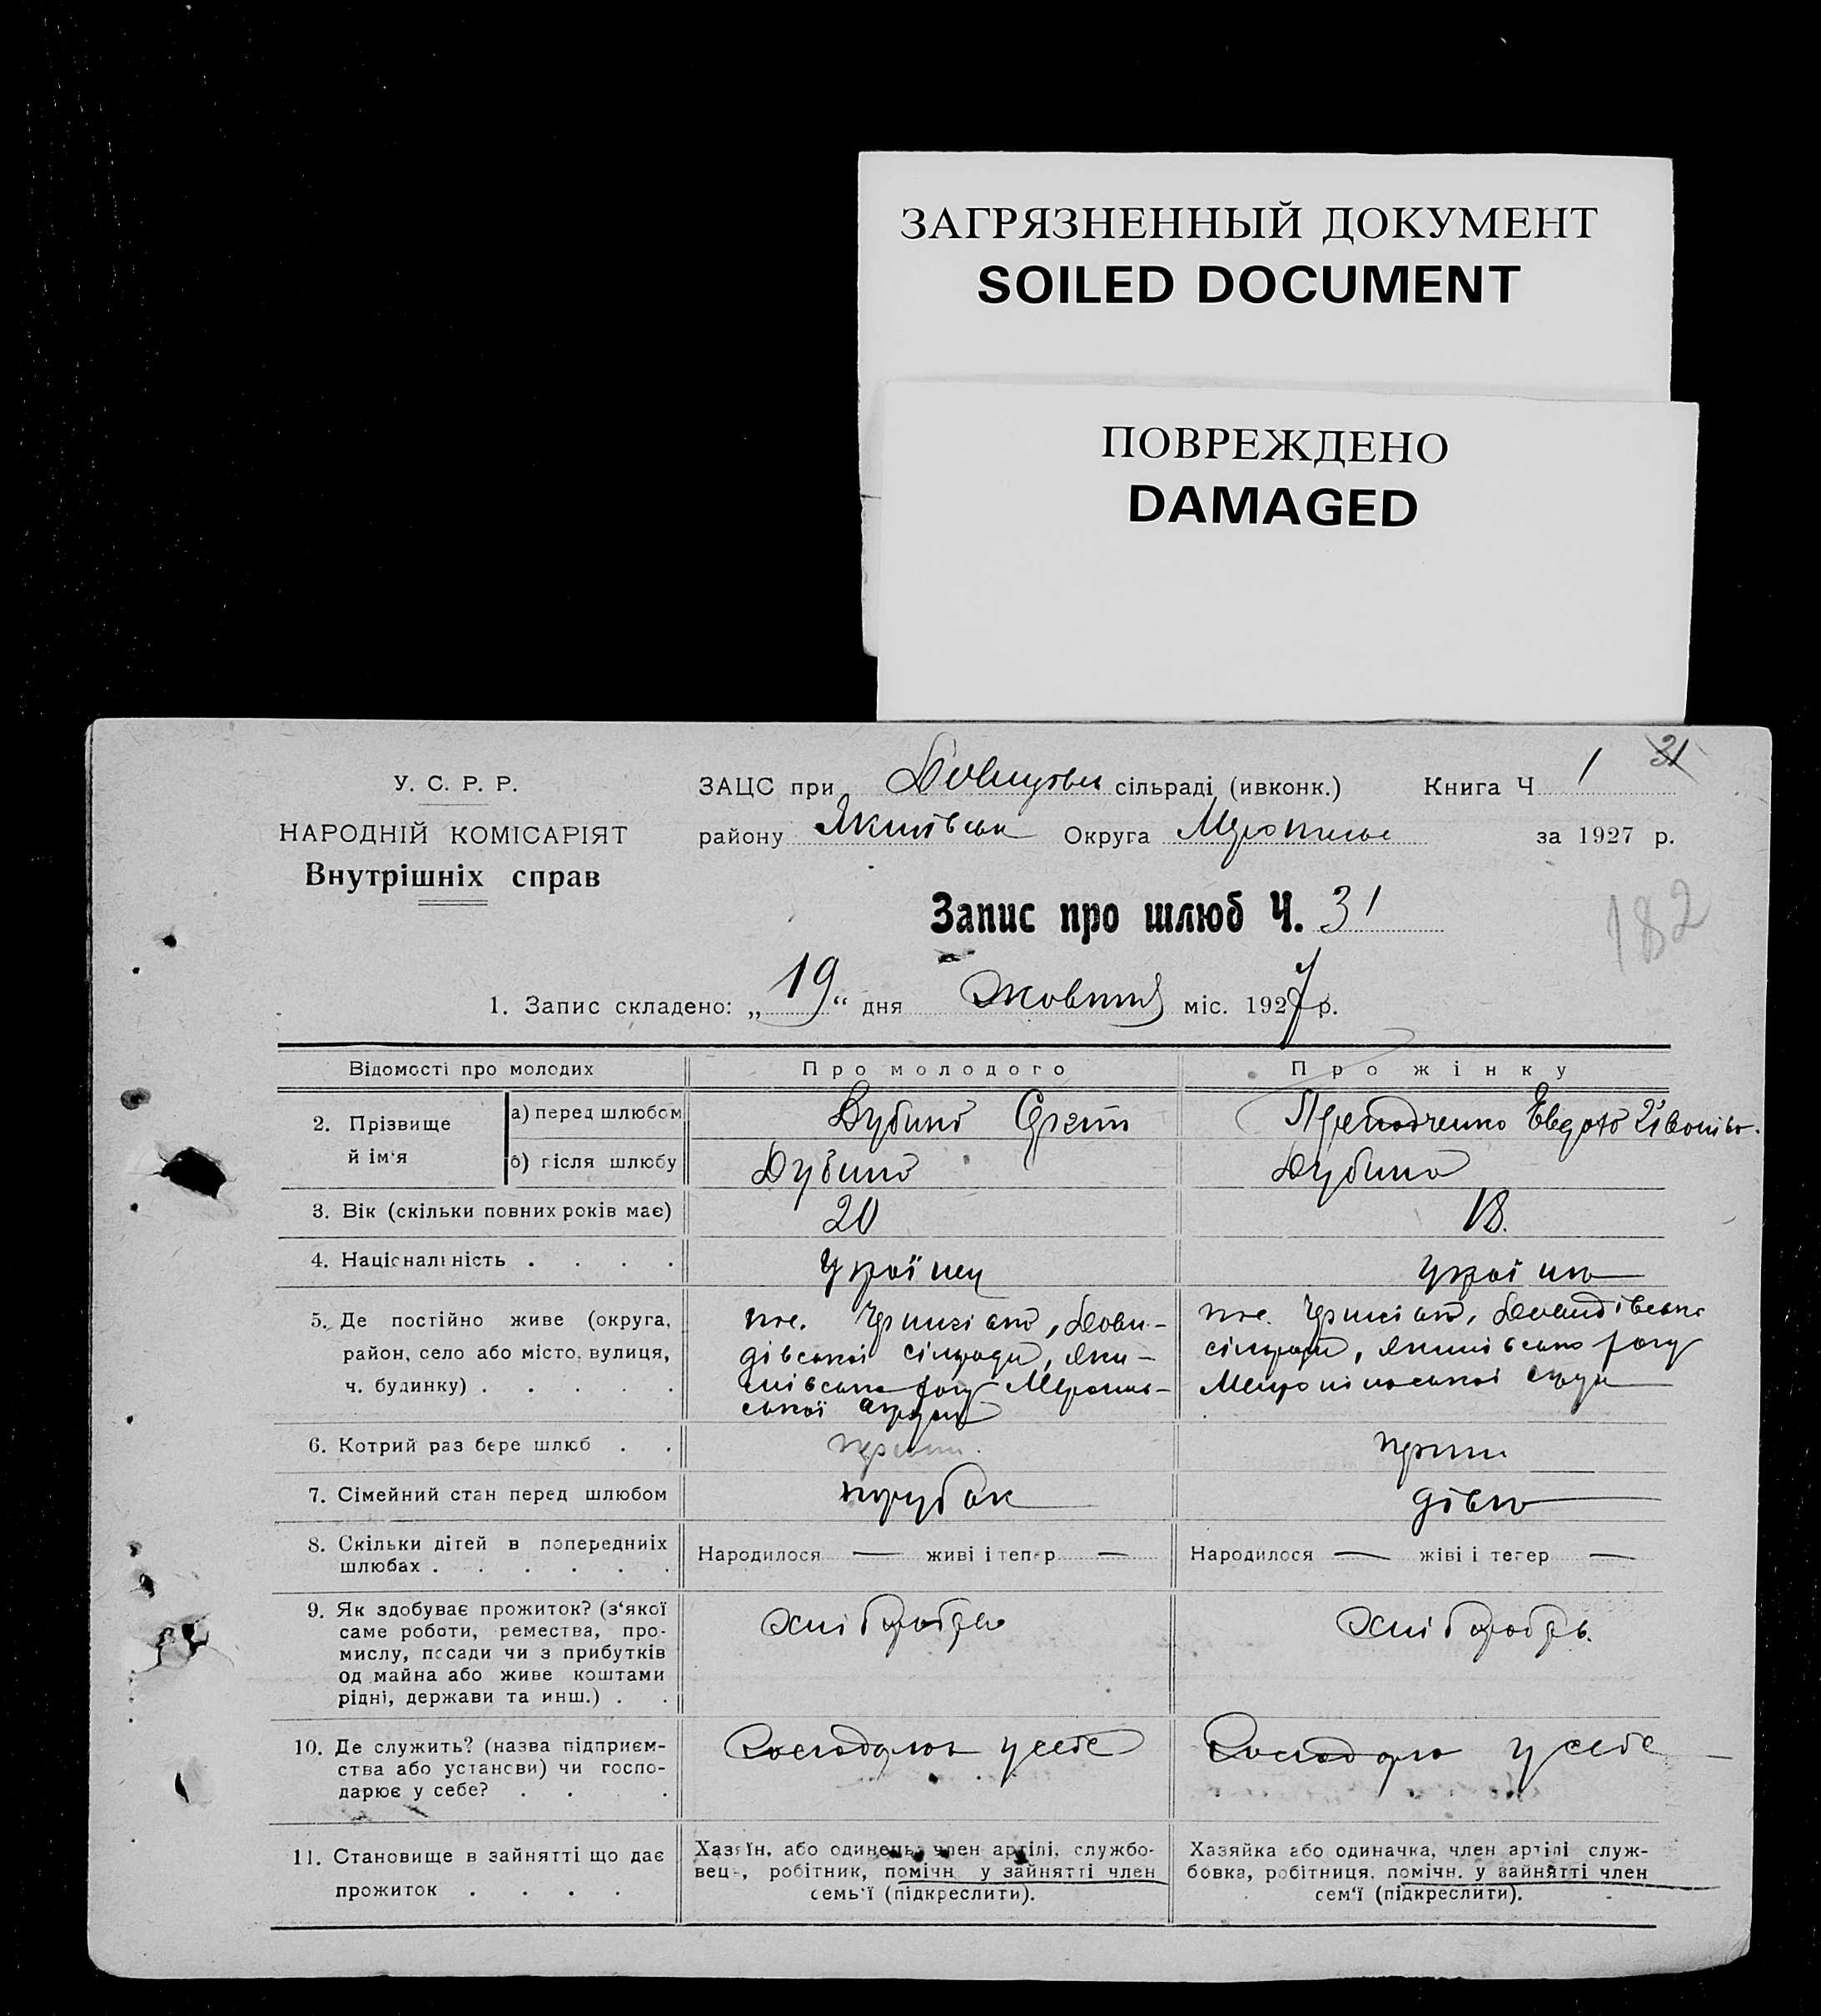 ЗАГРЯЗНЕННЫЙ ДОКУМЕНТ
SOILED DOCUMENT
ПОВРЕЖДЕНО
DAMAGED
У. С. Р. Р.
НАРОДНІЙ КОМІСАРІЯТ
Внутрішніх справ
31
ЗАЦС при сільраді (ивконк.) Книга Ч 1
району Якимівськ Округа за 1927 р.
Запис про шлюб Ч. 31
182
1. Запис складено: „19“ дня жовтня міс. 1927 р.
Відомості про молодих Про молодого Про жінку
2. Прізвище й ім'я
а) перед шлюбом Дубина
б) після шлюбу Дубина Дубина
3. Вік (скільки повних років має) 20 18.
4. Національність . . . . Українец україна
5. Де постійно живе (округа, район, село або місто, вулиця, ч. будинку) . . . . .
пос. Дови-
дівської сільради, Яки-
мівськ Меропіль-
ської округи
пос. Давидівської
сільради, Якимівськ
округи
6. Котрий раз бере шлюб . . перши. перши
7. Сімейний стан перед шлюбом парубок дівка
8. Скільки дітей в попередниіх шлюбах . . . . . .
Народилося — живі і тепер —
Народилося — жіві і тепер —
9. Як здобуває прожиток? (з'якої
саме роботи, ремества, про-
мислу, посади чи з прибутків
од майна або живе коштами
рідні, держави та инш.) . .
хліборобсв
хліборобсв.
10. Де служить? (назва підприєм-
ства або установи) чи госпо-
дарює у себе? . . .
у себе
у себе
11. Становище в зайнятті що дає
прожиток . . . .
Хазяїн, або одинець, член артілі, службо-
вець, робітник, помічн у зайнятті член
семь'ї (підкреслити).
Хазяйка або одиначка, член артілі служ-
бовка, робітниця, помічн. у зайнятті член
сем'ї (підкреслити).